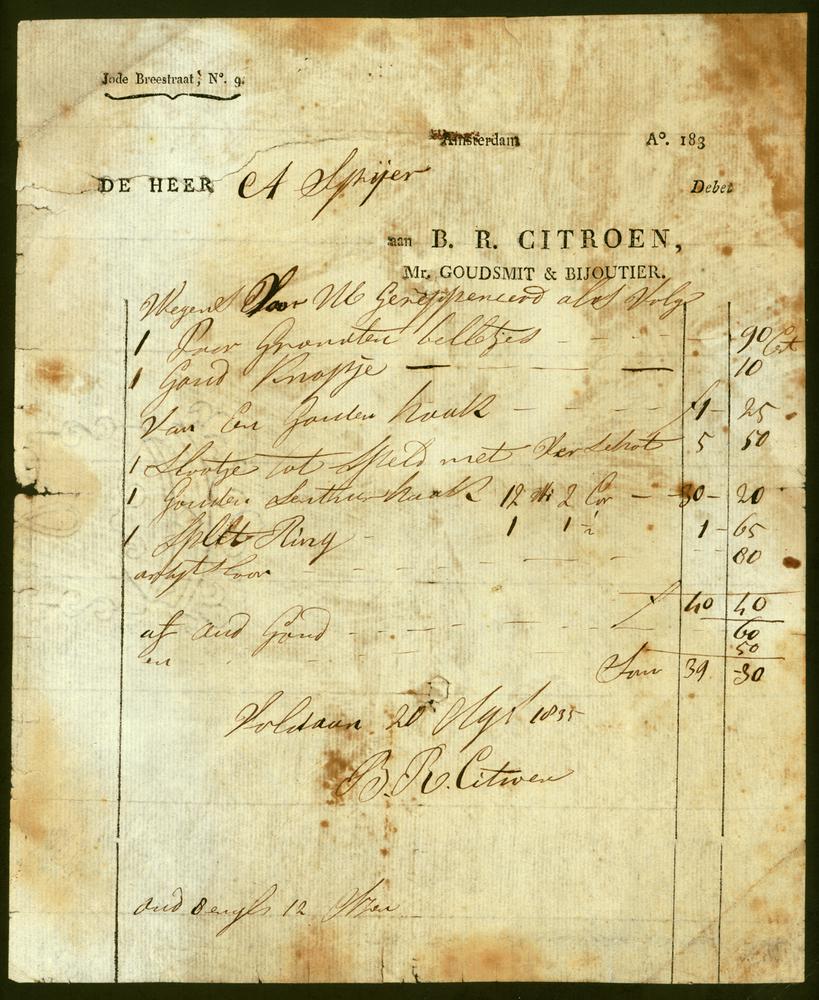 Jode Breestraat, N°. 9.
Amsterdam A°. 183
DE HEER A Spijer Debet
aan B. R. CITROEN,
Mr. GOUDSMIT & BIJOUTIER.
Wegens Voor UE Gerepareerd als Volgt
1 Paar Granaten belletjes - - - 90 Ct
1 Goud Knopje — — 10
Van Een Gouden haak - - - f1 - 25
1 Slootje tot Speld met 5 50
1 Gouden haak 12 2 - 30 - 20
1 Split Ring - 1 1½ 1 - 65
- - - 80
f 40 40
af Oud Goud - - - 60
en - - 50
Som 39 - 30
Voldaan 20 1835
B. R. Citroen
oud 8 engls 12